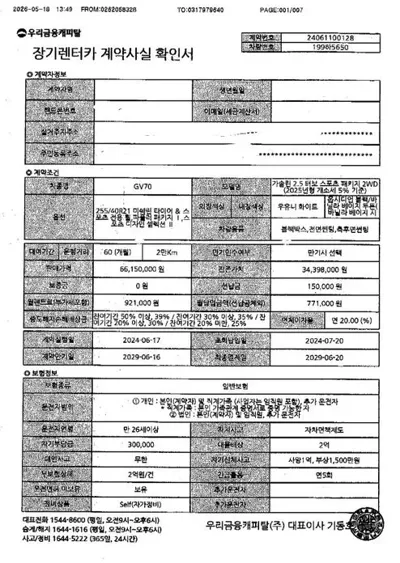 2026-05-18 13:49 FROM:0262058328 TO:0317979840 PAGE:001/007
우리금융캐피탈
계약번호 24061100128
차량번호 199허5650
장기렌터카 계약사실 확인서
계약자정보
계약자명 생년월일
핸드폰번호 이메일(세금계산서)
실거주지주소 ************
주민등록주소 ****************
계약조건
차종명 GV70 모델명 가솔린 2.5 터보 스포츠 패키지 2WD (2025년형 개소세 5% 기준)
옵션 255/40R21 미쉐린 타이어 & 스포츠 전용 휠, 파퓰러 패키지 I, 스포츠 디자인 셀렉션 II
외장색상 내장색상 우유니 화이트
차량용품 블랙박스,전면썬팅,측후면썬팅
대여기간 운행거리 60 (개월) 2만Km 만기인수여부 만기시 선택
판매가격 66,150,000 원 잔존가치 34,398,000 원
보증금 0 원 선납금 150,000 원
월렌트료(부가세포함) 921,000 원 월납입금액(선납금제외) 771,000 원
중도해지손해배상금 잔여기간 50% 이상, 39% / 잔여기간 30% 이상, 35% / 잔여기간 20% 이상, 30% / 잔여기간 20% 미만, 25%
연체이자율 연 20.00 (%)
계약실행일 2024-06-17 초회납입일 2024-07-20
계약만기일 2029-06-16 최종결제일 2029-06-20
보험정보
보험종류 일반보험
운전자범위 ① 개인 : 본인(계약자) 및 직계가족 (사업자는 임직원 포함), 추가 운전자
* 직계가족 : 본인 가족관계 증명서로 증명 가능한 자
② 법인 : 본인(계약자) 및 임직원, 추가 운전자
운전자연령 만 26세이상 자차사고 자차면책제도
자기부담금 300,000 대물배상 2억
대인사고 무한 자기신체사고 사망1억, 부상1,500만원
무보험상해 2억원/건 긴급출동 연5회
운전면허 미보유 보유 추가운전자
정비상품 Self(자가정비) 추가운전자
대표전화 1544-8600 (평일, 오전9시~오후6시)
승계/해지 1644-1616 (평일, 오전9시~오후6시)
사고/정비 1644-5222 (365일, 24시간)
우리금융캐피탈(주) 대표이사 기동호